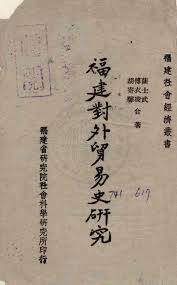 福建社會經濟叢書
薩士武
傅衣凌 合著
胡寄馨
福建對外貿易史研究
741 617
福建省研究院社會科學研究所印行